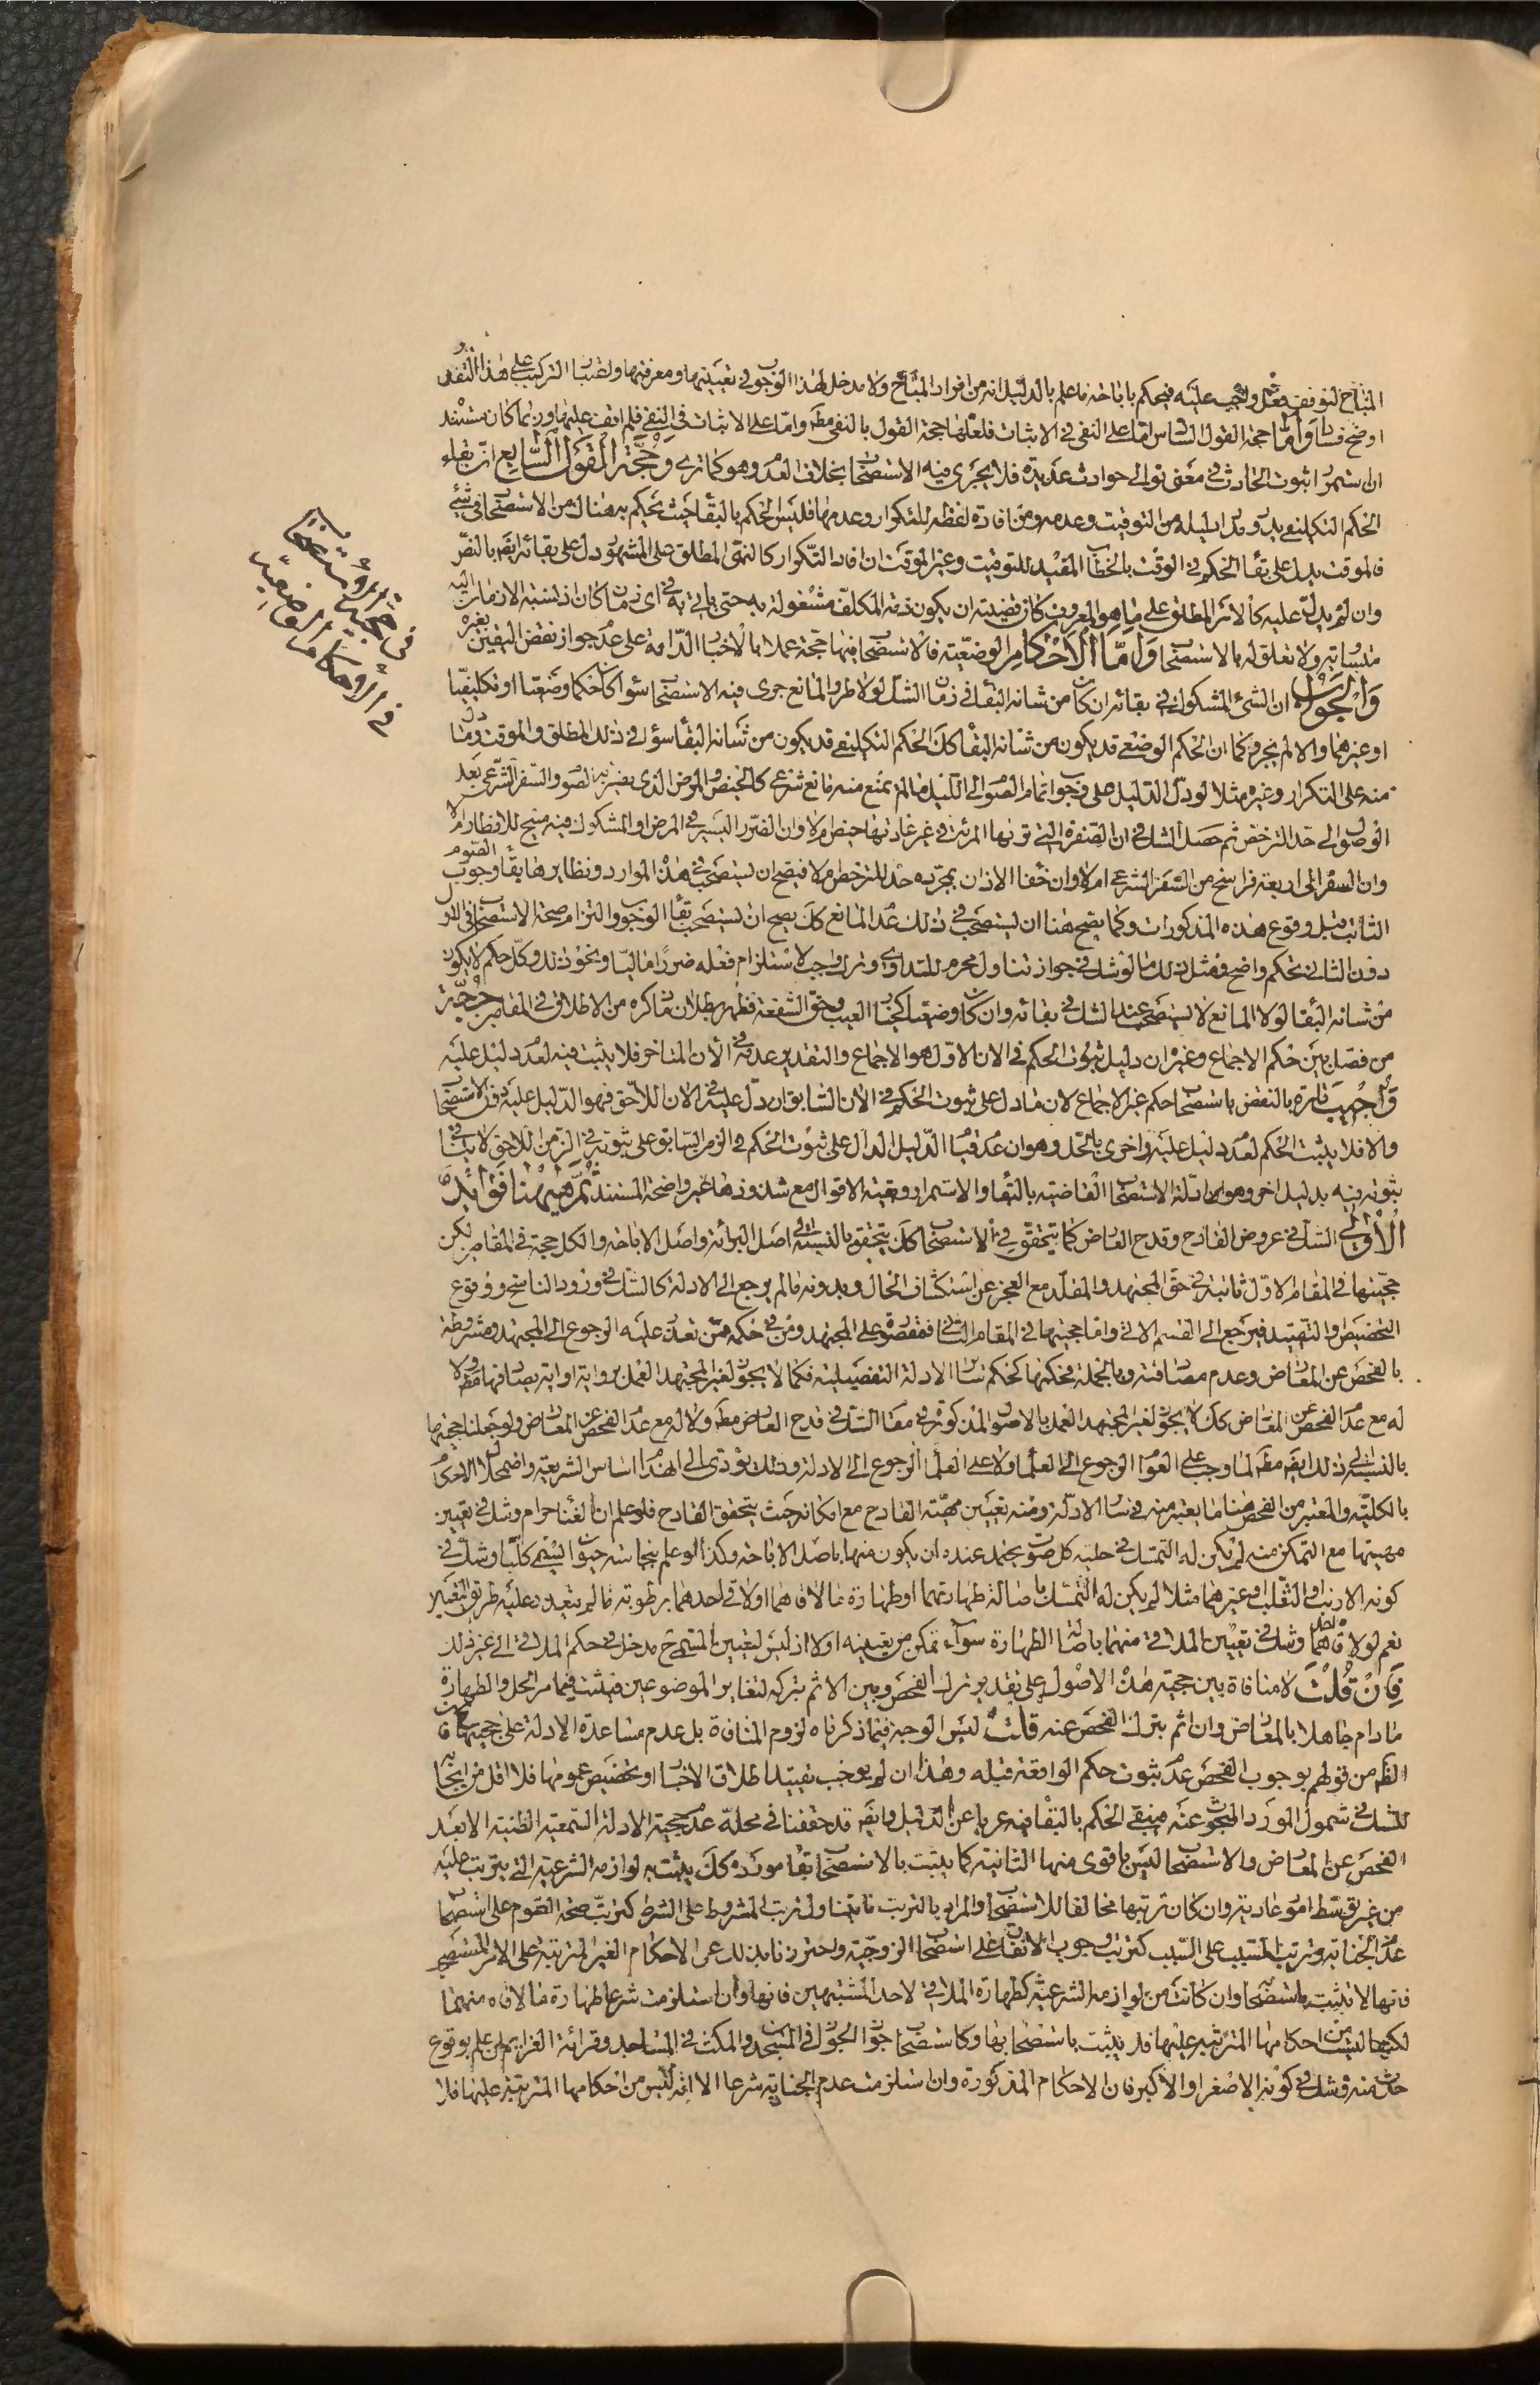 المباح لتوقف فعل واجب عليه فيحكم باباحته ما علم بالدليل انه من افراد المباح ولا مدخل لهذا الوجوب في تعيينها ومعرفتها ولضبا التركيب على هذا التقدير
اوضح فسادا واما حجة القول السادس اما على النفي في الاثبات فلعلها حجة القول بالنفي مطم واما على الاثبات في النفي فلم اقف عليها وربما كان مستند
ان استمرار ثبوت الحادث في معنى توالي حوادث عديدة فلا يجري فيه الاستصحاب بخلاف العدم وهو كما ترى وحجة القول السابع ان بقاء
الحكم التكليفي يدور مدار دليله من التوقيت وعدمه ومن افادة لفظه للتكرار وعدمها فليس الحكم بالبقاء حيث يحكم به هناك من الاستصحاب في شيء
فالموقت يدل على بقاء الحكم في الوقت بالخطاب المقيد للتوقيت وغير الموقت ان افاد التكرار كالنهي المطلق على المشهور دل على بقائه ايضا بالنص
وان لم يدل عليه كالامر المطلق على ما هو المعروف كان قضيته ان يكون ذمة المكلف مشغولة به حتى ياتي به في اي زمان كان اذ نسبة الازمان اليه
متساوية ولا تعلق له بالاستصحاب واما الاحكام الوضعية فالاستصحاب فيها حجة عملا بالاخبار الدالة على عدم جواز نقض اليقين بغيره
والجواب ان الشيء المشكوك في بقائه ان كان من شانه البقاء في زمان الشك لولا طرو المانع جرى فيه الاستصحاب سواء كان حكما وضعيا او تكليفيا
او غيرهما والا لم يجر وكما ان الحكم الوضعي قد يكون من شانه البقاء كذلك الحكم التكليفي قد يكون من شانه البقاء سواء في ذلك المطلق والموقت وما دل
منه على التكرار وغيره مثلا لو دل الدليل على وجوب اتمام الصوم الى الليل ما لم يمنع منه مانع شرعي كالحيض والمرض الذي يضر به الصوم والسفر الشرعي بعد
الوصول الى حد الترخص ثم حصل الشك في ان الصفرة التي تراها المرئة في غير عادتها حيض ام لا وان الضرر اليسير في المرض او المشكوك فيه مبيح للافطار ام لا
وان السفر الى اربعة فراسخ من السفر الشرعي ام لا وان خفاء الاذان بمجرده حد للترخص ام لا فيصح ان يستصحب في هذه الموارد ونظايرها بقاء وجوب الصوم
الثابت قبل وقوع هذه المذكورات وكما يصح هنا ان يستصحب في ذلك عدم المانع كذلك يصح ان يستصحب بقاء الوجوب والتزام صحة الاستصحاب في الاول
دون الثاني تحكم واضح ومثل ذلك ما لو شك في جواز تناول محرم للتداوي وترك واجب لاستلزام فعله ضررا ماليا ونحو ذلك وكل حكم لا يكون
من شانه البقاء لولا المانع لا يستصحب عند الشك في بقائه وان كان وضعيا كخيار العيب وحق الشفعة فظهر بطلان ما ذكره من الاطلاق في المقامين حجة
من فصل بين حكم الاجماع وغيره ان دليل ثبوت الحكم في الان الاول هو الاجماع والتقدير عدمه في الان المتاخر فلا يثبت فيه لعدم دليل عليه
واجيب تارة بالنقض باستصحاب حكم غير الاجماع لان ما دل على ثبوت الحكم في الان السابق ان دل عليه في الان اللاحق فهو الدليل عليه دون الاستصحاب
والا فلا يثبت الحكم لعدم دليل عليه واخرى بالحل وهو ان عدم قيام الدليل الدال على ثبوت الحكم في الزمن السابق على ثبوته في الزمن اللاحق لا ينافي
ثبوته فيه بدليل اخر وهو ادلة الاستصحاب القاضية بالبقاء والاستمرار وبقية الاقوال مع شذوذها غير واضحة المستند ثم هيهنا فوائد
الاولى الشك في عروض القادح وقدح العارض كما يتحقق في الاستصحاب كذلك يتحقق بالنسبة الى اصل البرائة واصل الاباحة والكل حجة في المقامين لكن
حجيتها في المقام الاول ثابتة في حق المجتهد والمقلد مع العجز عن استكشاف الحال وبدونه ما لم يرجع الى الادلة كالشك في ورود الناسخ ووقوع
التخصيص والتقييد فيرجع الى القسم الاتي واما حجيتها في المقام الثاني فمقصورة على المجتهد ومن في حكمه ممن تعذر عليه الرجوع الى المجتهد ومشروطة
بالفحص عن المعارض وعدم مصادفته وبالجملة فحكمها كحكم سائر الادلة التفصيلية فكما لا يجوز لغير المجتهد العمل برواية او اية يصادفها مطم ولا
له مع عدم الفحص عن المعارض كذلك لا يجوز لغير المجتهد العمل بالاصول المذكورة في مقام الشك في قدح العارض مطم ولا له مع عدم الفحص عن المعارض ولو جعلنا حجيتها
بالنسبة الى ذلك ايضا مطم لما وجب على العوام الرجوع الى العلماء ولا على العلماء الرجوع الى الادلة وذلك يؤدي الى انهدام اساس الشريعة واضمحلال الاحكام
بالكلية والمعتبر من الفحص هنا ما يعتبر منه في سائر الادلة ومنه تعيين مهية القادح مع امكانه حيث يتحقق القادح فلو علم ان الغناء حرام وشك في تعيين
مهيتها مع التمكن منه لم يكن له التمسك في حلية كل صوت يحتمل عنده ان يكون منها باصل الاباحة وكذا لو علم نجاسة حيوان يسمى كلبا وشك في
كونه الارنب او الثعلب او غيرهما مثلا لم يكن له التمسك باصالة طهارتهما او طهارة ما لاقاهما او لاقى احدهما برطوبة ما لم يتعذر عليه طريق التعيين
نعم لو لاقى احدهما وشك في تعيين الملاقي منهما باصالة الطهارة سواء تمكن من تعيينه او لا اذ ليس لتعيين المتنجس مدخل في حكم الملاقي الى غير ذلك
فان قلت لا منافاة بين حجية هذه الاصول على تقدير ترك الفحص وبين الاثم بتركه لتغاير الموضوعين فيثبت فيما مر الحل والطهارة
ما دام جاهلا بالمعارض وان اثم بترك الفحص عنه قلت ليس الوجه فيما ذكرناه لزوم المنافاة بل عدم مساعدة الادلة على حجيتها فان
الظم من قولهم بوجوب الفحص عدم ثبوت حكم الواقعة قبله وهذا ان لم يوجب تقييد اطلاق الاخبار او تخصيص عمومها فلا اقل من ايجابه
للشك في شمول المورد المبحوث عنه فيبقى الحكم بالبقاء فيه عريا عن الدليل وايضا قد حققنا في محله عدم حجية الادلة السمعية الظنية الا بعد
الفحص عن المعارض والاستصحاب ليس باقوى منها الثانية كما يثبت بالاستصحاب بقاء مورده كذلك يثبت به لوازمه الشرعية التي يترتب عليه
من غير توسط امور عادية وان كان ترتبها مخالفا للاستصحاب والمراد بالترتب ما يتناول ترتب المشروط على الشرط كترتب صحة الصوم على استصحاب
عدم الجنابة وترتب المسبب على السبب كترتب وجوب الانفاق على استصحاب الزوجية واحترزنا بذلك عن الاحكام الغير المترتبة على الامر المستصحب
فانها لا تثبت باستصحابه وان كانت من لوازمه الشرعية كطهارة الملاقي لاحد المشتبهين فانها وان استلزمت شرعا طهارة ما لاقاه منهما
لكنها ليست من احكامها المترتبة عليها فلا يثبت باستصحابها وكاستصحاب جواز الدخول في المسجد والمكث في المساجد وقرائة العزايم لمن علم بوقوع
حدث منه وشك في كونه الاصغر او الاكبر فان الاحكام المذكورة وان استلزمت عدم الجنابة شرعا الا انه ليس من احكامها المترتبة عليها فلا